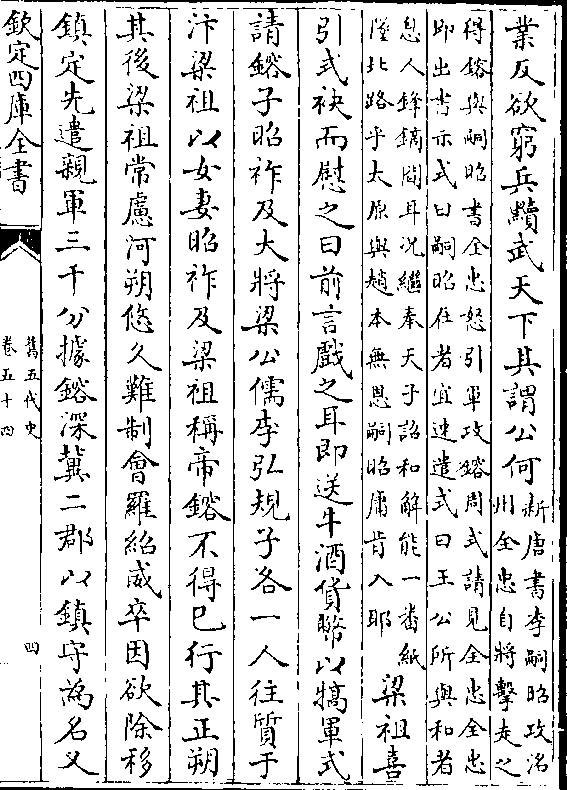 業反欲窮兵黷武天下其謂公何
新唐書李嗣昭攻洺
州全忠自將擊走之
得鎔與嗣昭書全忠怒引軍攻鎔周式請見全忠全忠
即出書示式曰嗣昭在者宜速遣式曰王公所與和者
息人鋒鏑間耳况繼奉天子詔和解能一番紙
墜北路乎太原與趙本無恩嗣昭庸肯入耶
梁祖喜
引式袂而慰之曰前言戲之耳即送牛酒貨幣以犒軍式
請鎔子昭祚及大將梁公儒李弘規子各一人往質于
汴梁祖以女妻昭祚及梁祖稱帝鎔不得已行其正朔
其後梁祖常慮河朔悠久難制會羅紹威卒因欲除移
鎮定先遣親軍三千分據鎔深冀二郡以鎮守為名又
欽定四庫全書
舊五代史
卷五十四
四